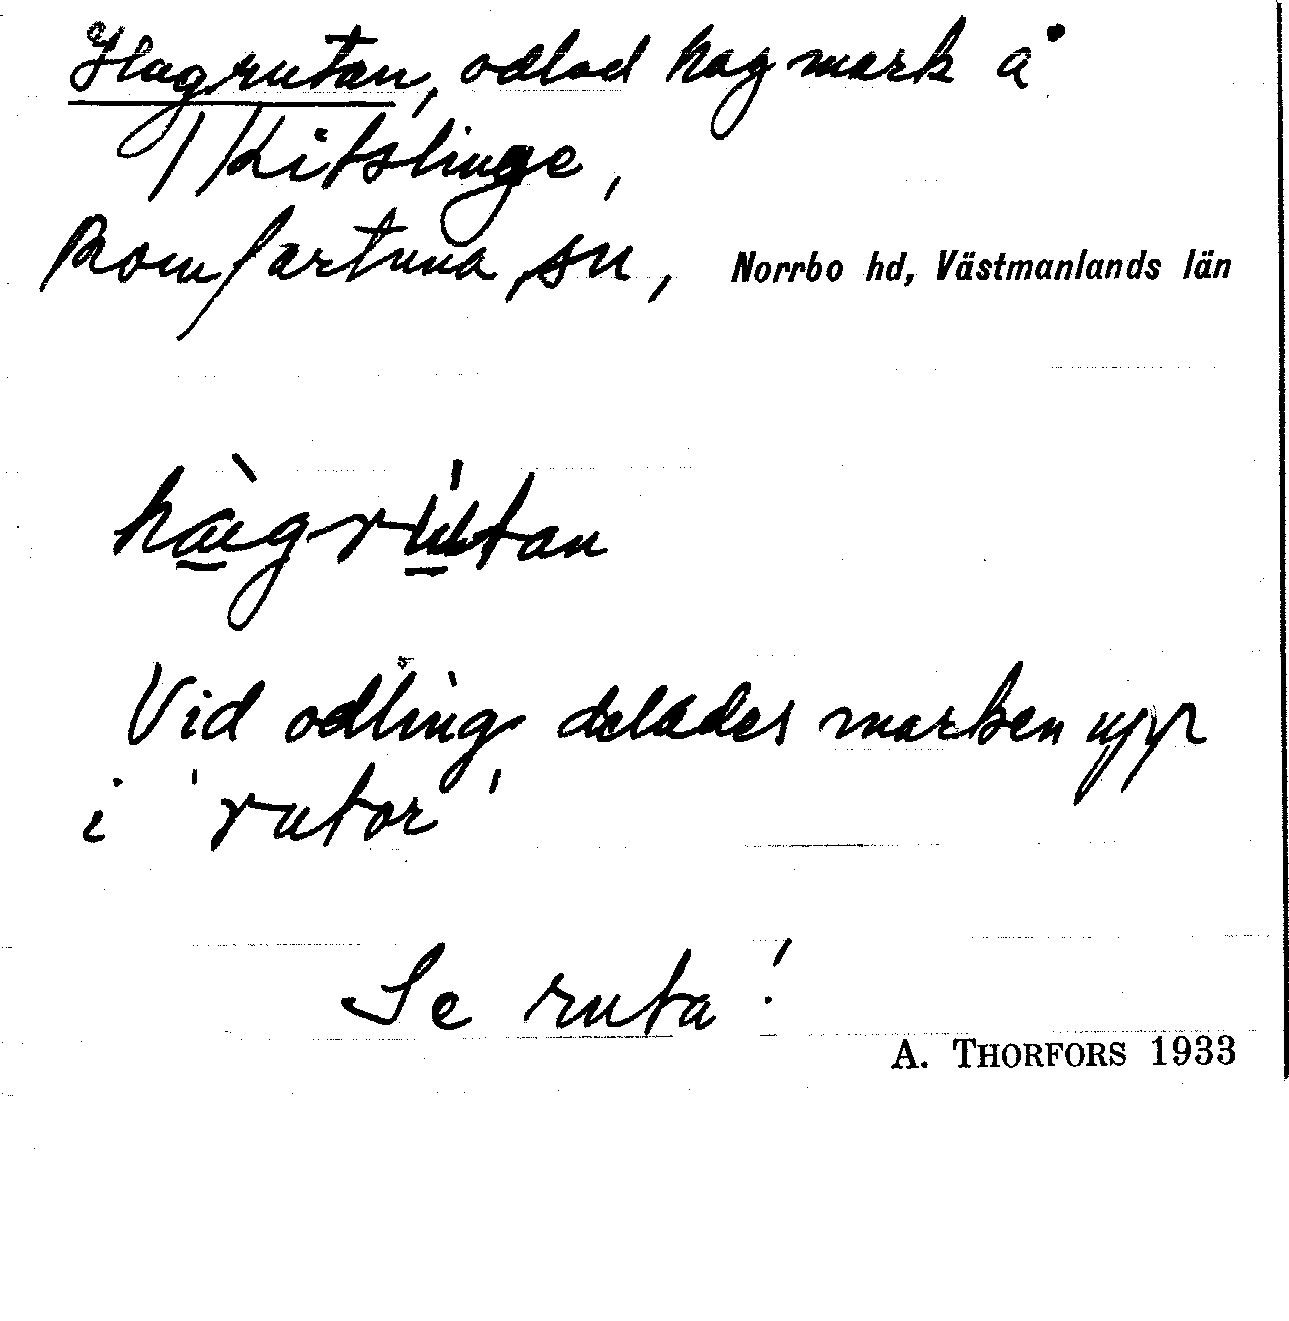 Hagrutan, odlad hagmark å
Kitslinge,
Romfartuna sn, Norrbo hd, Västmanlands län
hàgrútan
Vid odling delades marken upp
i 'rutor'
Se ruta!
A. THORFORS 1933